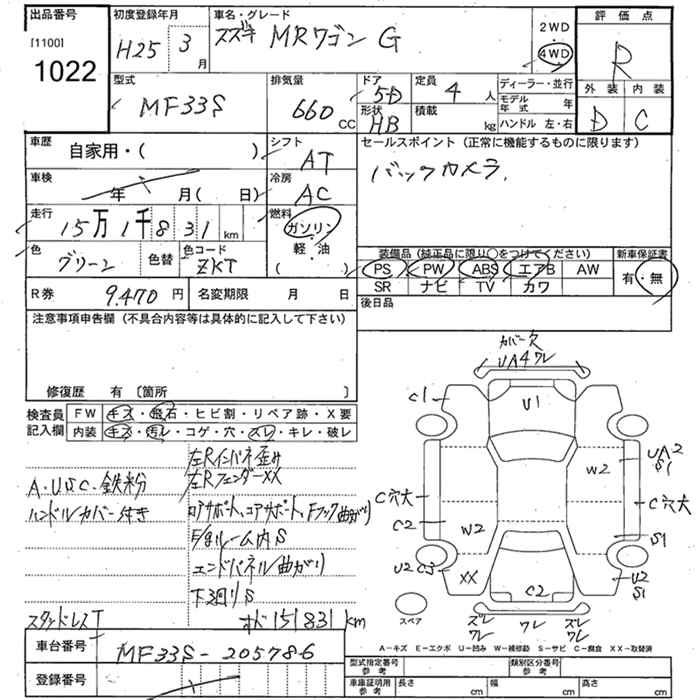 出品番号
[1100]
1022
初度登録年月
H25 3
月
車名・グレード
スズキ MRワゴン G
2WD
4WD
評 価 点
R
外 装
内 装
D
C
型式
MF33S
排気量
660
CC
ドア
5D
形状
HB
定員
4 人
積載
kg
ディーラー・並行
モデル年式
年
ハンドル 左・右
車歴
自家用・( )
車検
年 月( 日)
走行
15万1千831 km
色
グリーン
色替
色コード
ZKT
シフト
AT
冷房
AC
燃料
ガソリン
軽・油
( )
セールスポイント (正常に機能するものに限ります)
バックカメラ.
装備品 (純正品に限り○をつけてください)
PS PW ABS エアB AW
SR ナビ TV カワ
新車保証書
有・無
後日品
R券
9,470 円
名変期限 月 日
注意事項申告欄 (不具合内容等は具体的に記入して下さい)
修復歴 有 〔箇所
検査員
記入欄
FW キズ・飛石・ヒビ割・リペア跡・X要
内装 キズ・汚レ・コゲ・穴・スレ・キレ・破レ
左Rインパネ歪み
A・U・S・C・鉄粉
左RフェンダーXX
ハンドルカバー付き
ロアサポート、コアサポート、Fフック曲がり
ルーム内S
エンドパネル曲がり
下廻りS
スタッドレスT
オド151831km
車台番号
MF33S-205786
登録番号
カバー欠
UA4 ワレ
C1
U1
W2
UA2
S1
C穴大
C2
W2
C穴大
S1
U2 C3
XX
C2
U2
S1
スペア
ズレ
ワレ
ワレ
ズレ
ワレ
A-キズ E-エクボ U-凹み W-補修跡 S-サビ C-腐食 XX-取替済
型式指定番号
参考
類別区分番号
参考
車庫証明用
参考
長さ cm
幅 cm
高さ cm